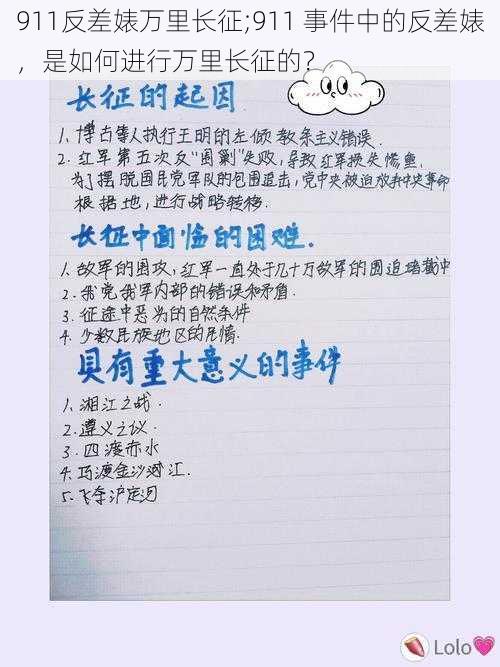 911反差婊万里长征;911 事件中的反差婊
，是如何进行万里长征的？
长征的起因
1、博古等人执行王明的左倾教条主义错误.
2. 红军第五次反“围剿”失败，导致红军损失惨重.
为了摆脱国民党军队的包围追击，党中央被迫放弃中央革命
根据地，进行战略转移.
长征中面临的困难.
1、敌军的围攻，红军一直处于几十万敌军的围追堵截中
2. 我党我军内部的错误和矛盾.
3. 征途中恶劣的自然条件
4. 少数民族地区的民情.
具有重大意义的事件
1、湘江之战.
2. 遵义之议.
3. 四渡赤水
4. 巧渡金沙江.
5. 飞夺泸定河
Lolo